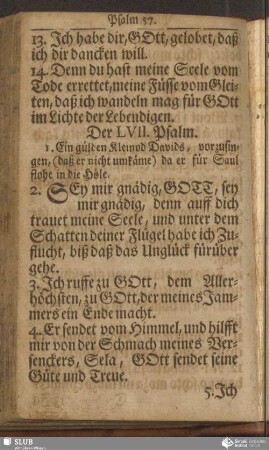 Psalm 57.
13. Ich habe dir, GOtt, gelobet, daß
ich dir dancken will.
14. Denn du hast meine Seele vom
Tode errettet, meine Füsse vom Glei-
ten, daß ich wandeln mag für GOtt
im Lichte der Lebendigen.
Der LVII. Psalm.
1. Ein gülden Kleinod Davids, vorzusin-
gen, (daß er nicht umkäme) da er für Saul
flohe in die Höle.
2. SEy mir gnädig, GOTT, sey
mir gnädig, denn auff dich
trauet meine Seele, und unter dem
Schatten deiner Flügel habe ich Zu-
flucht, biß daß das Unglück fürüber
gehe.
3. Ich ruffe zu GOtt, dem Aller-
höchsten, zu GOtt, der meines Jam-
mers ein Ende macht.
4. Er sendet vom Himmel, und hilfft
mir von der Schmach meines Ver-
senckers, Sela, GOtt sendet seine
Güte und Treue.
5. Ich
SLUB